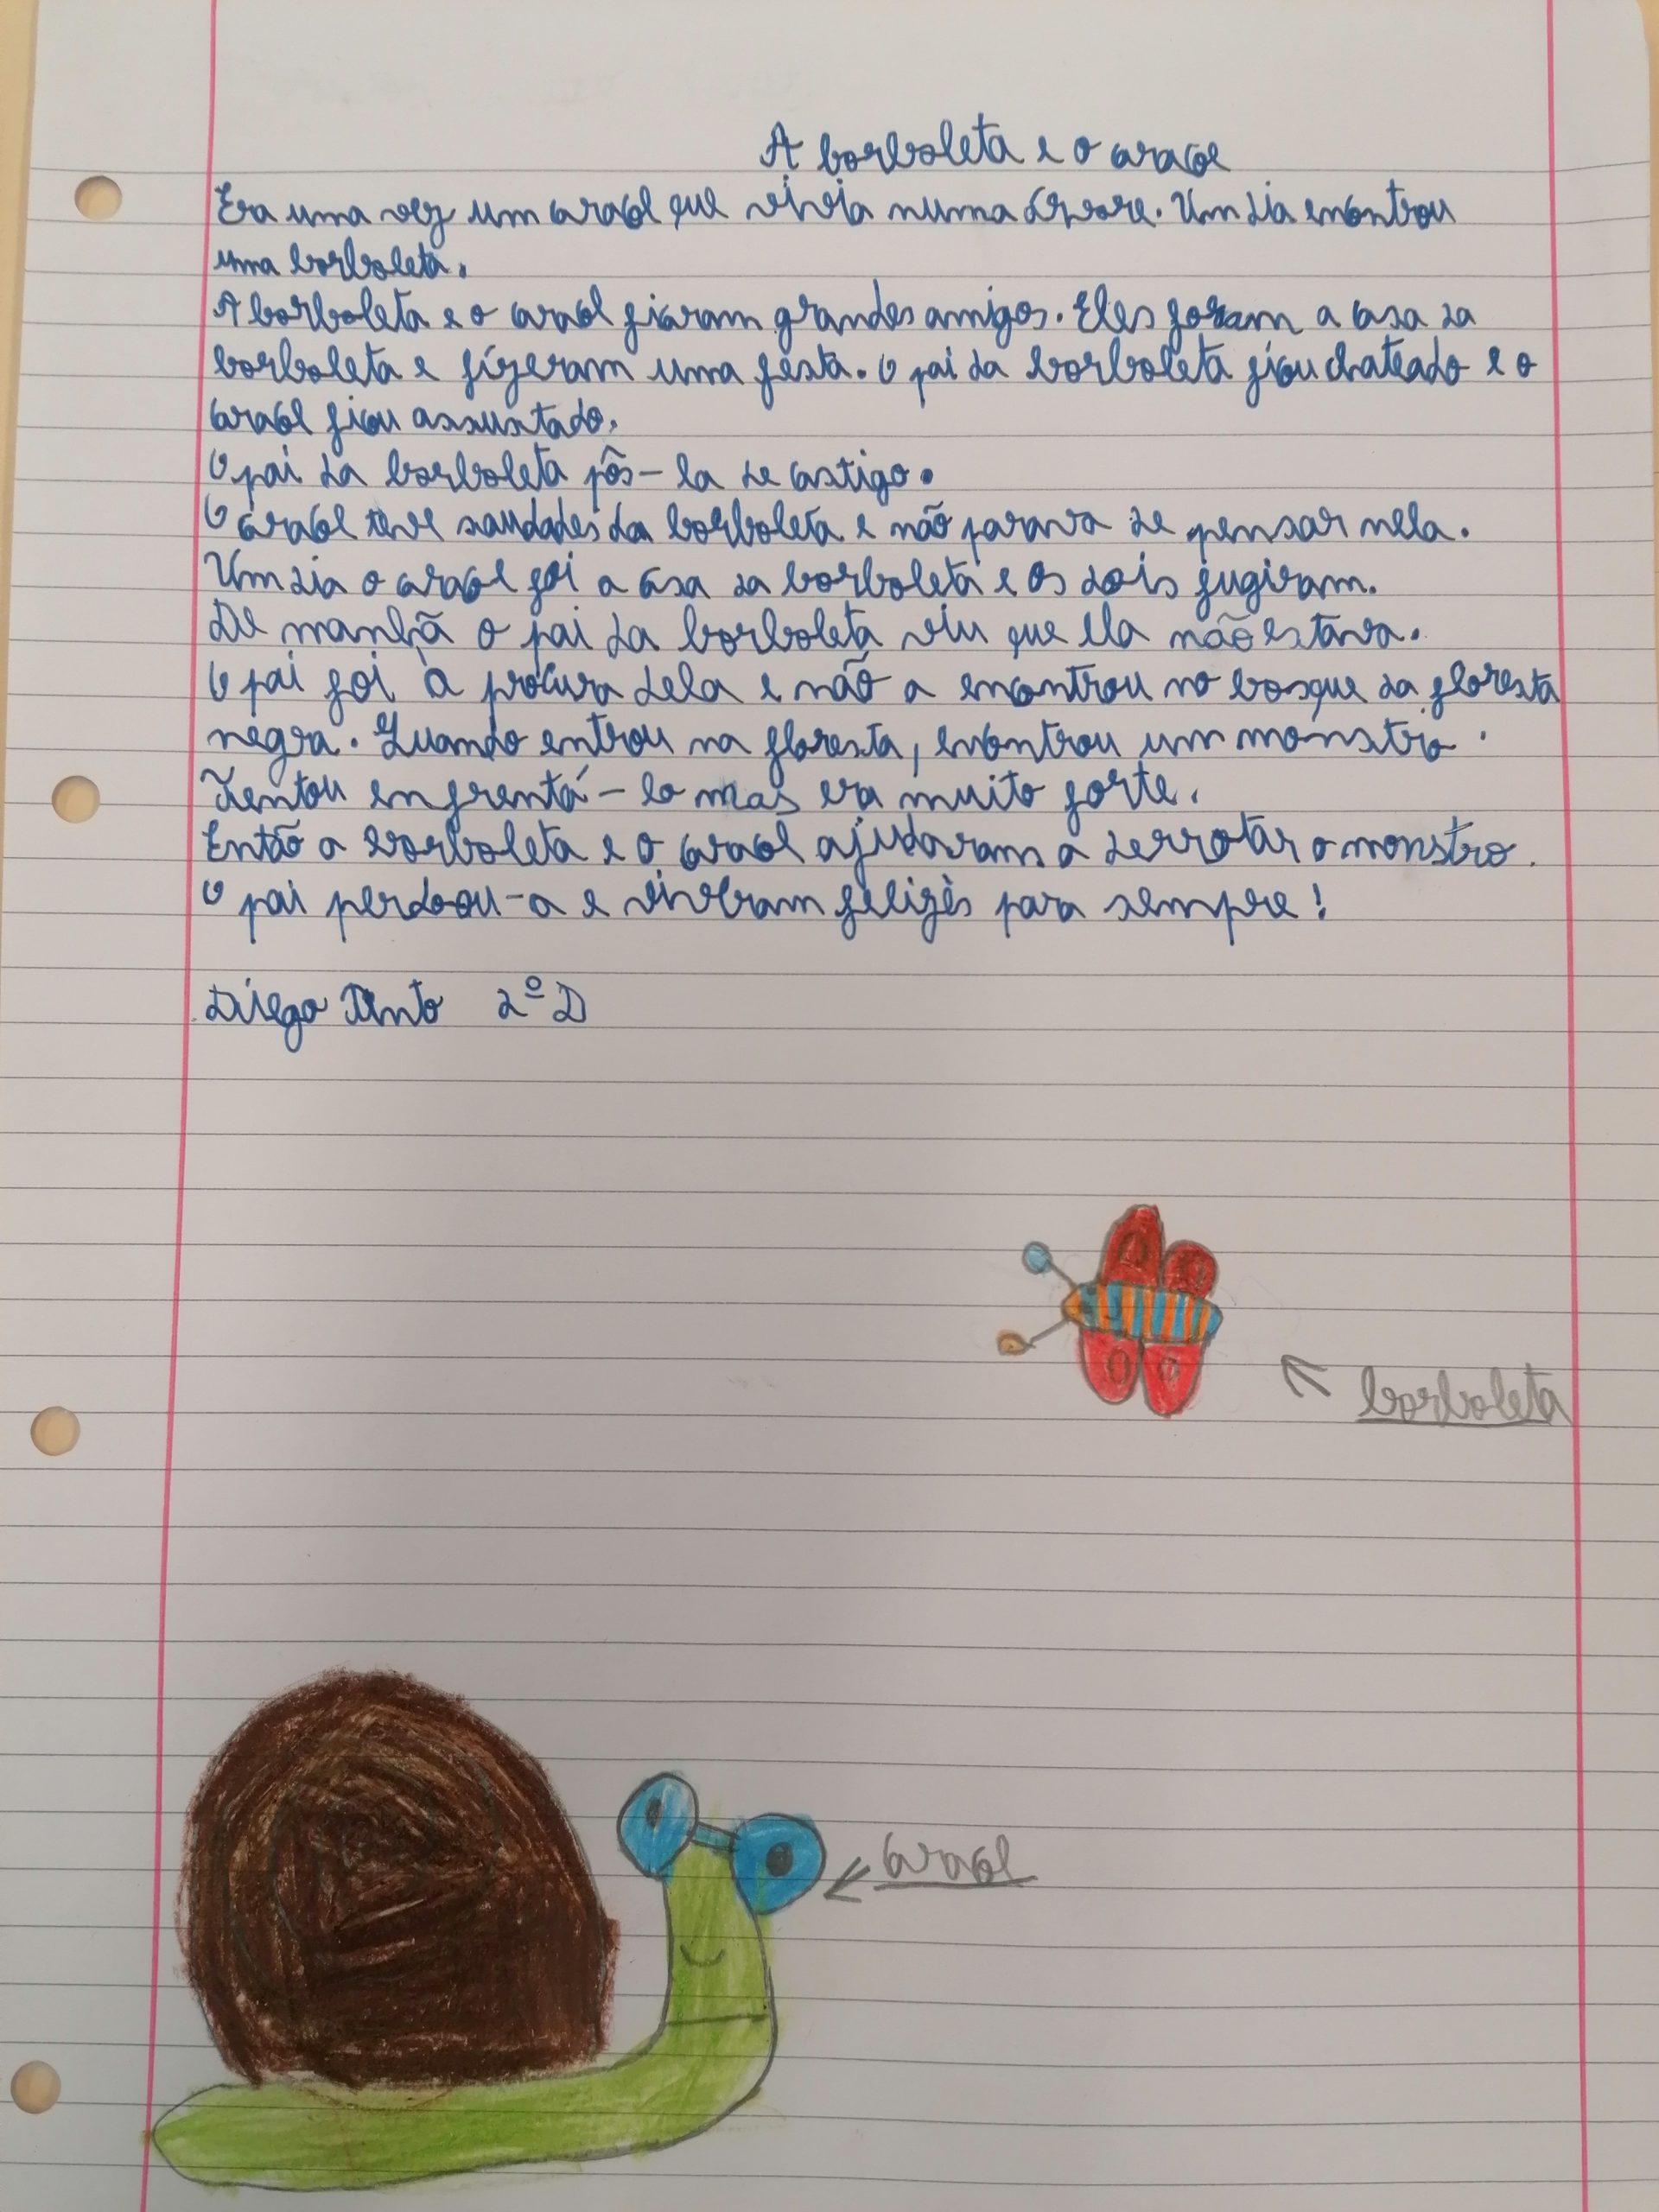 A borboleta e o caracol
Era uma vez um caracol que vivia numa árvore. Um dia encontrou
uma borboleta.
A borboleta e o caracol ficaram grandes amigos. Eles foram a casa da
borboleta e fizeram uma festa. O pai da borboleta ficou chateado e o
caracol ficou assustado.
O pai da borboleta pôs-la de castigo.
O caracol teve saudades da borboleta e não parava de pensar nela.
Um dia o caracol foi a casa da borboleta e os dois fugiram.
De manhã o pai da borboleta viu que ela não estava.
O pai foi à procura dela e não a encontrou no bosque da floresta
negra. Quando entrou na floresta, encontrou um monstro.
Tentou enfrentá-lo mas era muito forte.
Então a borboleta e o caracol ajudaram a derrotar o monstro.
O pai perdoou-a e viveram felizes para sempre!
Diego Pinto 2º D
borboleta
caracol